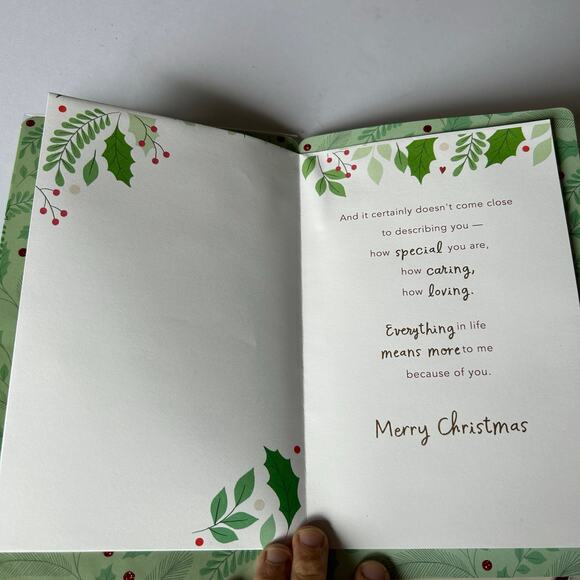 And it certainly doesn't come close
to describing you —
how special you are,
how caring,
how loving.
Everything in life
means more to me
because of you.
Merry Christmas